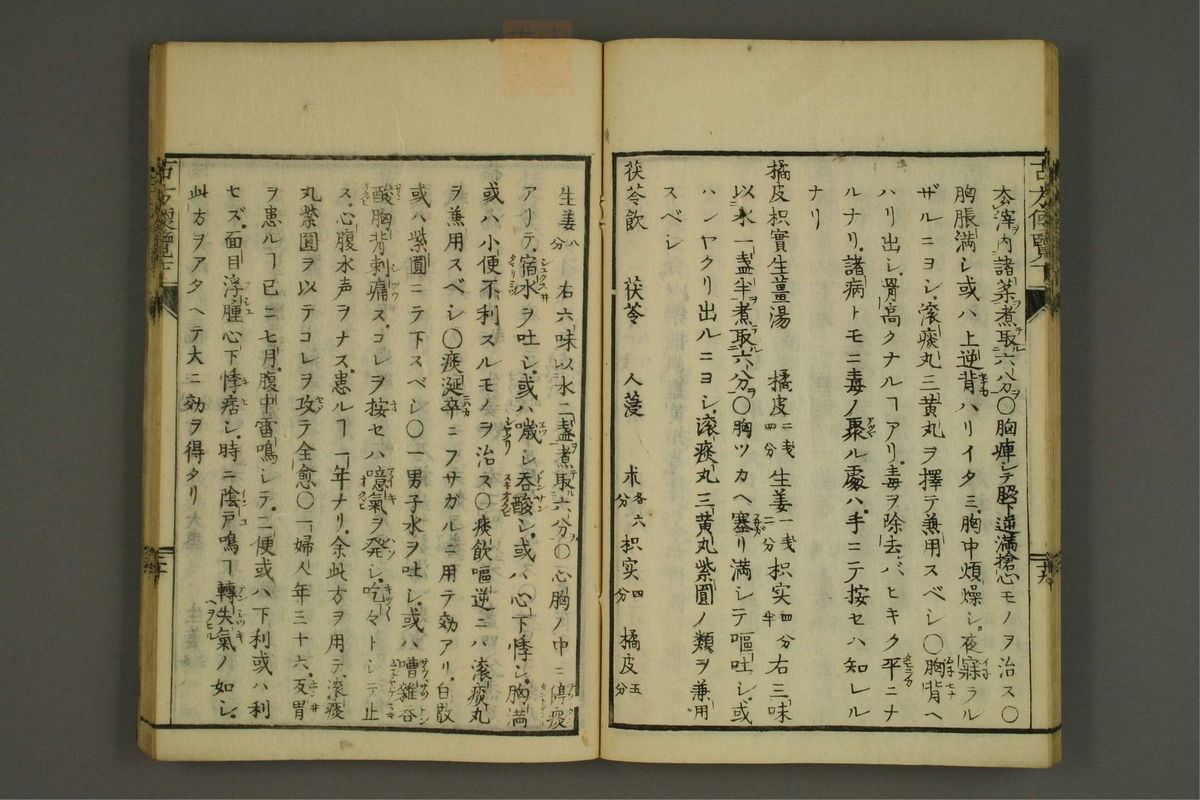 去滓内諸薬煮取六八分〇胸痺シテ脇下逆満搶心モノヲ治ス〇
胸脹満シ或ハ上逆背ハリイタミ胸中煩燥シ夜寐ラル
ザルニヨシ滾痰丸三黄丸ヲ擇テ兼用スベシ〇胸背ヘ
ハリ出シ骨高クナルヿアリ毒ヲ除去レバヒキク平ニナ
ルナリ諸病トモニ毒ノ聚ル處ハ手ニテ按セハ知レル
ナリ
橘皮枳實生薑湯 橘皮二戔四分 生姜一戔二分 枳実四分半 右三味
以水一盞半煮取六分〇胸ツカヘ塞リ満シテ嘔吐シ或
ハシヤクリ出ルニヨシ滾痰丸三黄丸紫圓ノ類ヲ兼用
スベシ
茯苓飲 茯苓 人蓡 朮各六分 枳実四分 橘皮五分
生姜八分 右六味以水二盞煮取六分〇心胸ノ中ニ停痰
アリテ宿水ヲ吐シ或ハ噦シ吞酸シ或ハ心下悸シ胸満
或ハ小便不利スルモノヲ治ス〇痰飲嘔逆ニハ滾痰丸
ヲ兼用スベシ〇痰涎卒ニフサガルニ用テ効アリ白散
或ハ紫圓ニテ下スベシ〇一男子水ヲ吐シ或ハ嘈雜吞
酸胸背刺痛スコレヲ按セハ噫氣ヲ発シ吃々トシテ止
ス心腹水声ヲナス患ルヿ一年ナリ余此方ヲ用テ滾痰
丸紫圓ヲ以テコレヲ攻テ全愈〇一婦人年三十六反胃
ヲ患ルヿ已ニ七月腹中雷鳴シテ二便或ハ下利或ハ利
セズ面目浮腫心下悸痞シ時ニ陰戸鳴ヿ轉失氣ノ如シ
此方ヲアタヘテ大ニ効ヲ得タリ